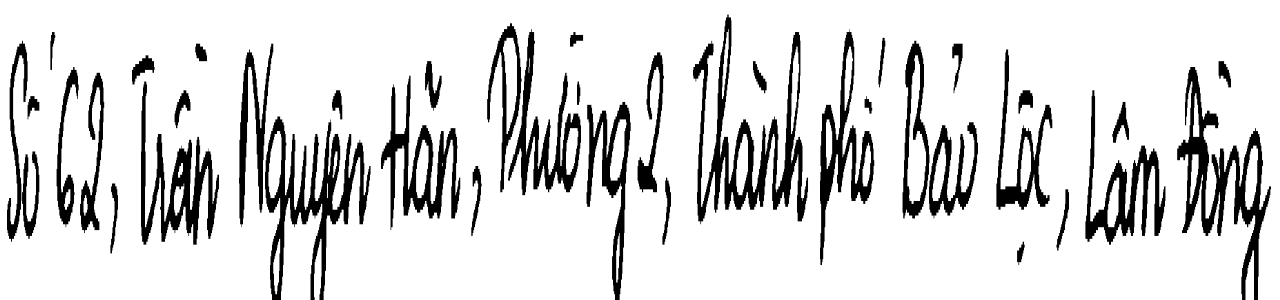 Số 62, Trần Nguyên Hãn, Phường 2, Thành phố Bảo Lộc, Lâm Đồng